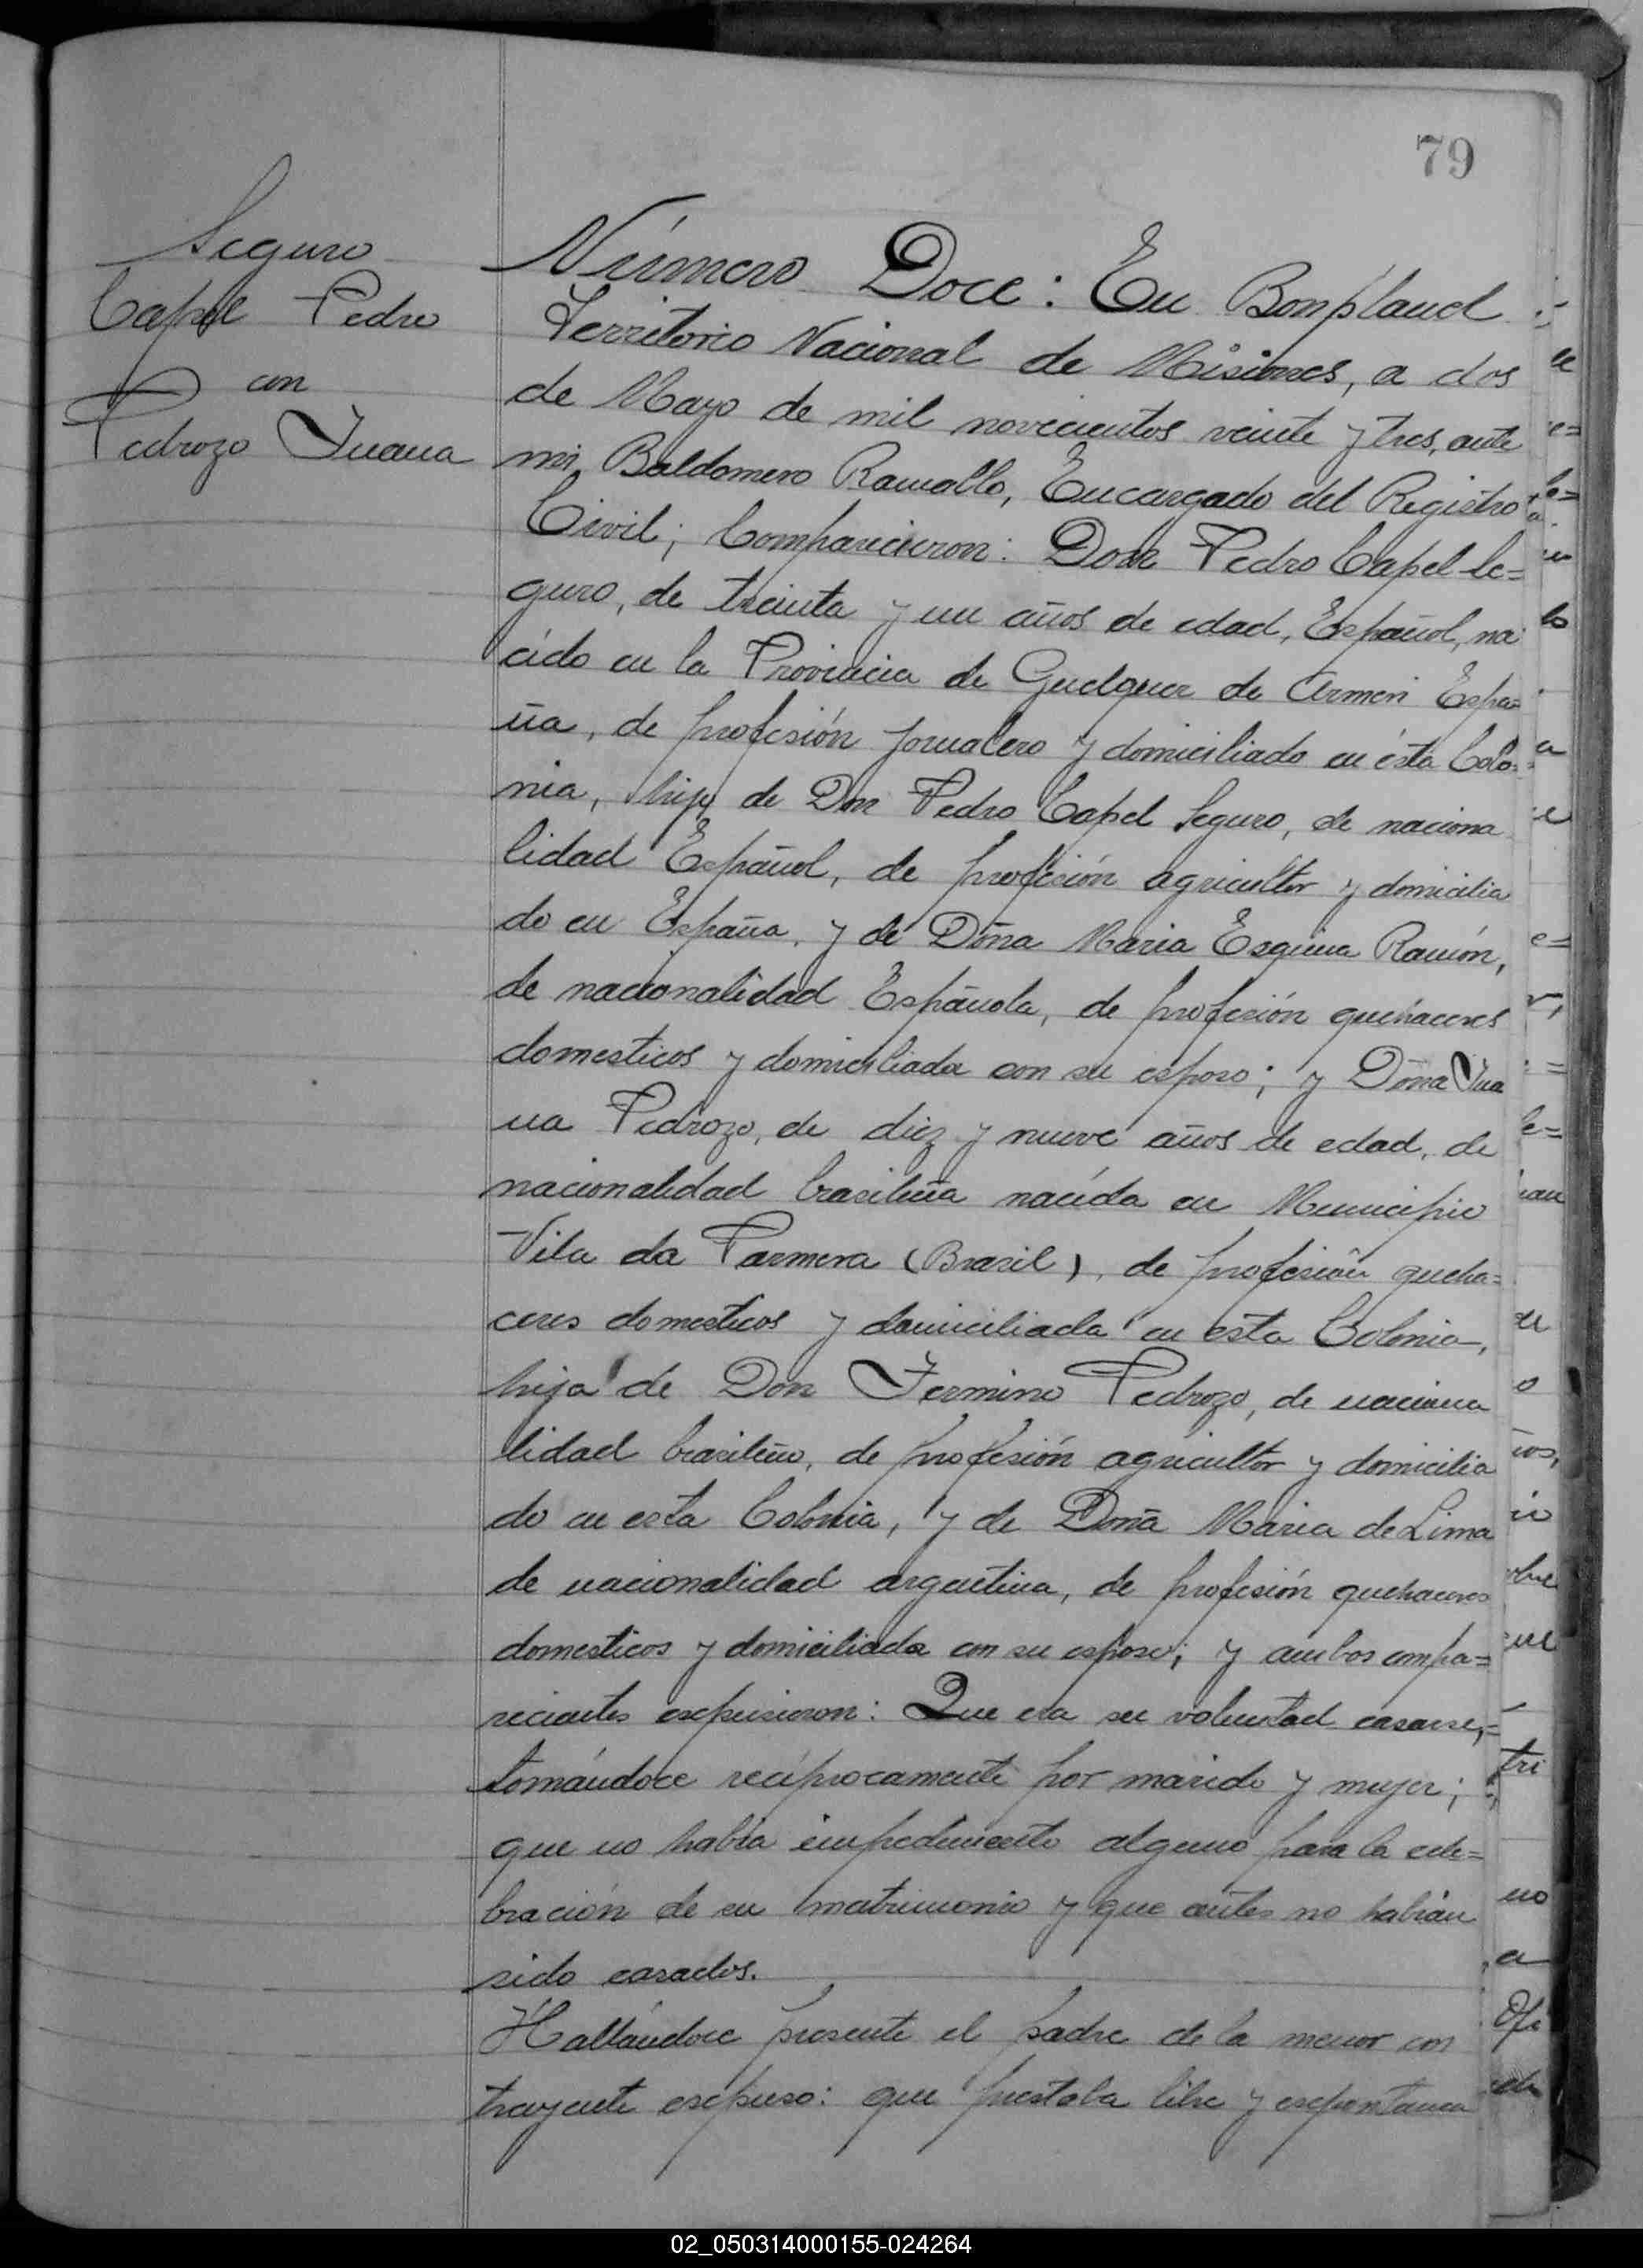 79
Seguro
Capel Pedro
con
Pedrozo Juana
Número Doce: En Bonpland
Territorio Nacional de Misiones, a dos
de Mayo de mil novecientos veinte y tres, ante
mi, Baldomero Ramallo, Encargado del Registro
Civil; Comparicieron: Don Pedro Capel Se=
guro, de treinta y un años de edad, Español, na
cido en la Provincia de de Armeri Espa=
ña, de profesión jornalero y domiciliado en ésta Colo=
nia, hijo de Don Pedro Capel Seguro, de naciona
lidad Español, de profesión agricultor y domicilia
do en España, y de Doña Maria Esquina Ramón,
de nacionalidad Española, de profesión quehaceres
domesticos y domiciliada con su esposo; y Doña Jua
na Pedrozo, de diez y nueve años de edad, de
nacionalidad brasileña nacida en Municipio
Vila da Parmera (Brasil), de profesión queha=
ceres domesticos y domiciliada en esta Colonia,
hija de Don Fermino Pedrozo, de naciona
lidad brasileño, de profesión agricultor y domicilia
do en esta Colonia, y de Doña Maria de Lima
de nacionalidad argentina, de profesión quehaceres
domesticos y domiciliada con su esposo; y ambos compa=
recientes expusieron: Que era su voluntad casarse,=
tomándoce recíprocamente por marido y mujer;
que no habia impedimento alguno para la cele=
bración de su matrimonio y que antes no habian
sido casados.
Hallándoce presente el padre de la menor con
trayente expuso: que prestaba libre y espontanea
02_050314000155-024264